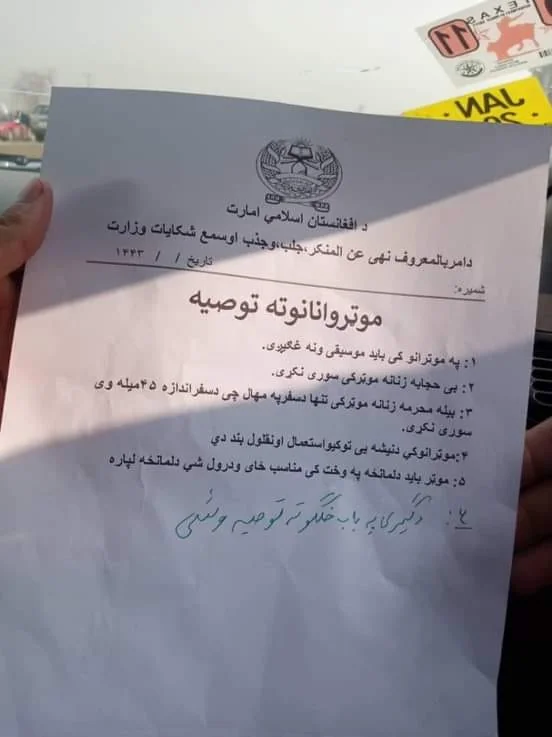 TEXAS
11
JAN
د افغانستان اسلامي امارت
دامربالمعروف نهی عن المنکر،جلب،وجذب اوسمع شکایات وزارت
شمیره:
تاریخ / / ۱۴۴۳
موټروانانوته توصیه
۱: په موټرانو کی باید موسیقی ونه غګیږی.
۲: بی حجابه زنانه موټرکی سوری نکړی.
۳: بیله محرمه زنانه موټرکی تنها دسفرپه مهال چی دسفراندازه ۴۵میله وی
سوری نکړی.
۴:موټرانوکي دنیشه یی توکیواستعمال اونقلول بند دي
۵: موټر باید دلمانځه په وخت کی مناسب ځای ودرول شي دلمانځه لپاره
۶: دګیری په باب خلګو ته توصیه وشی